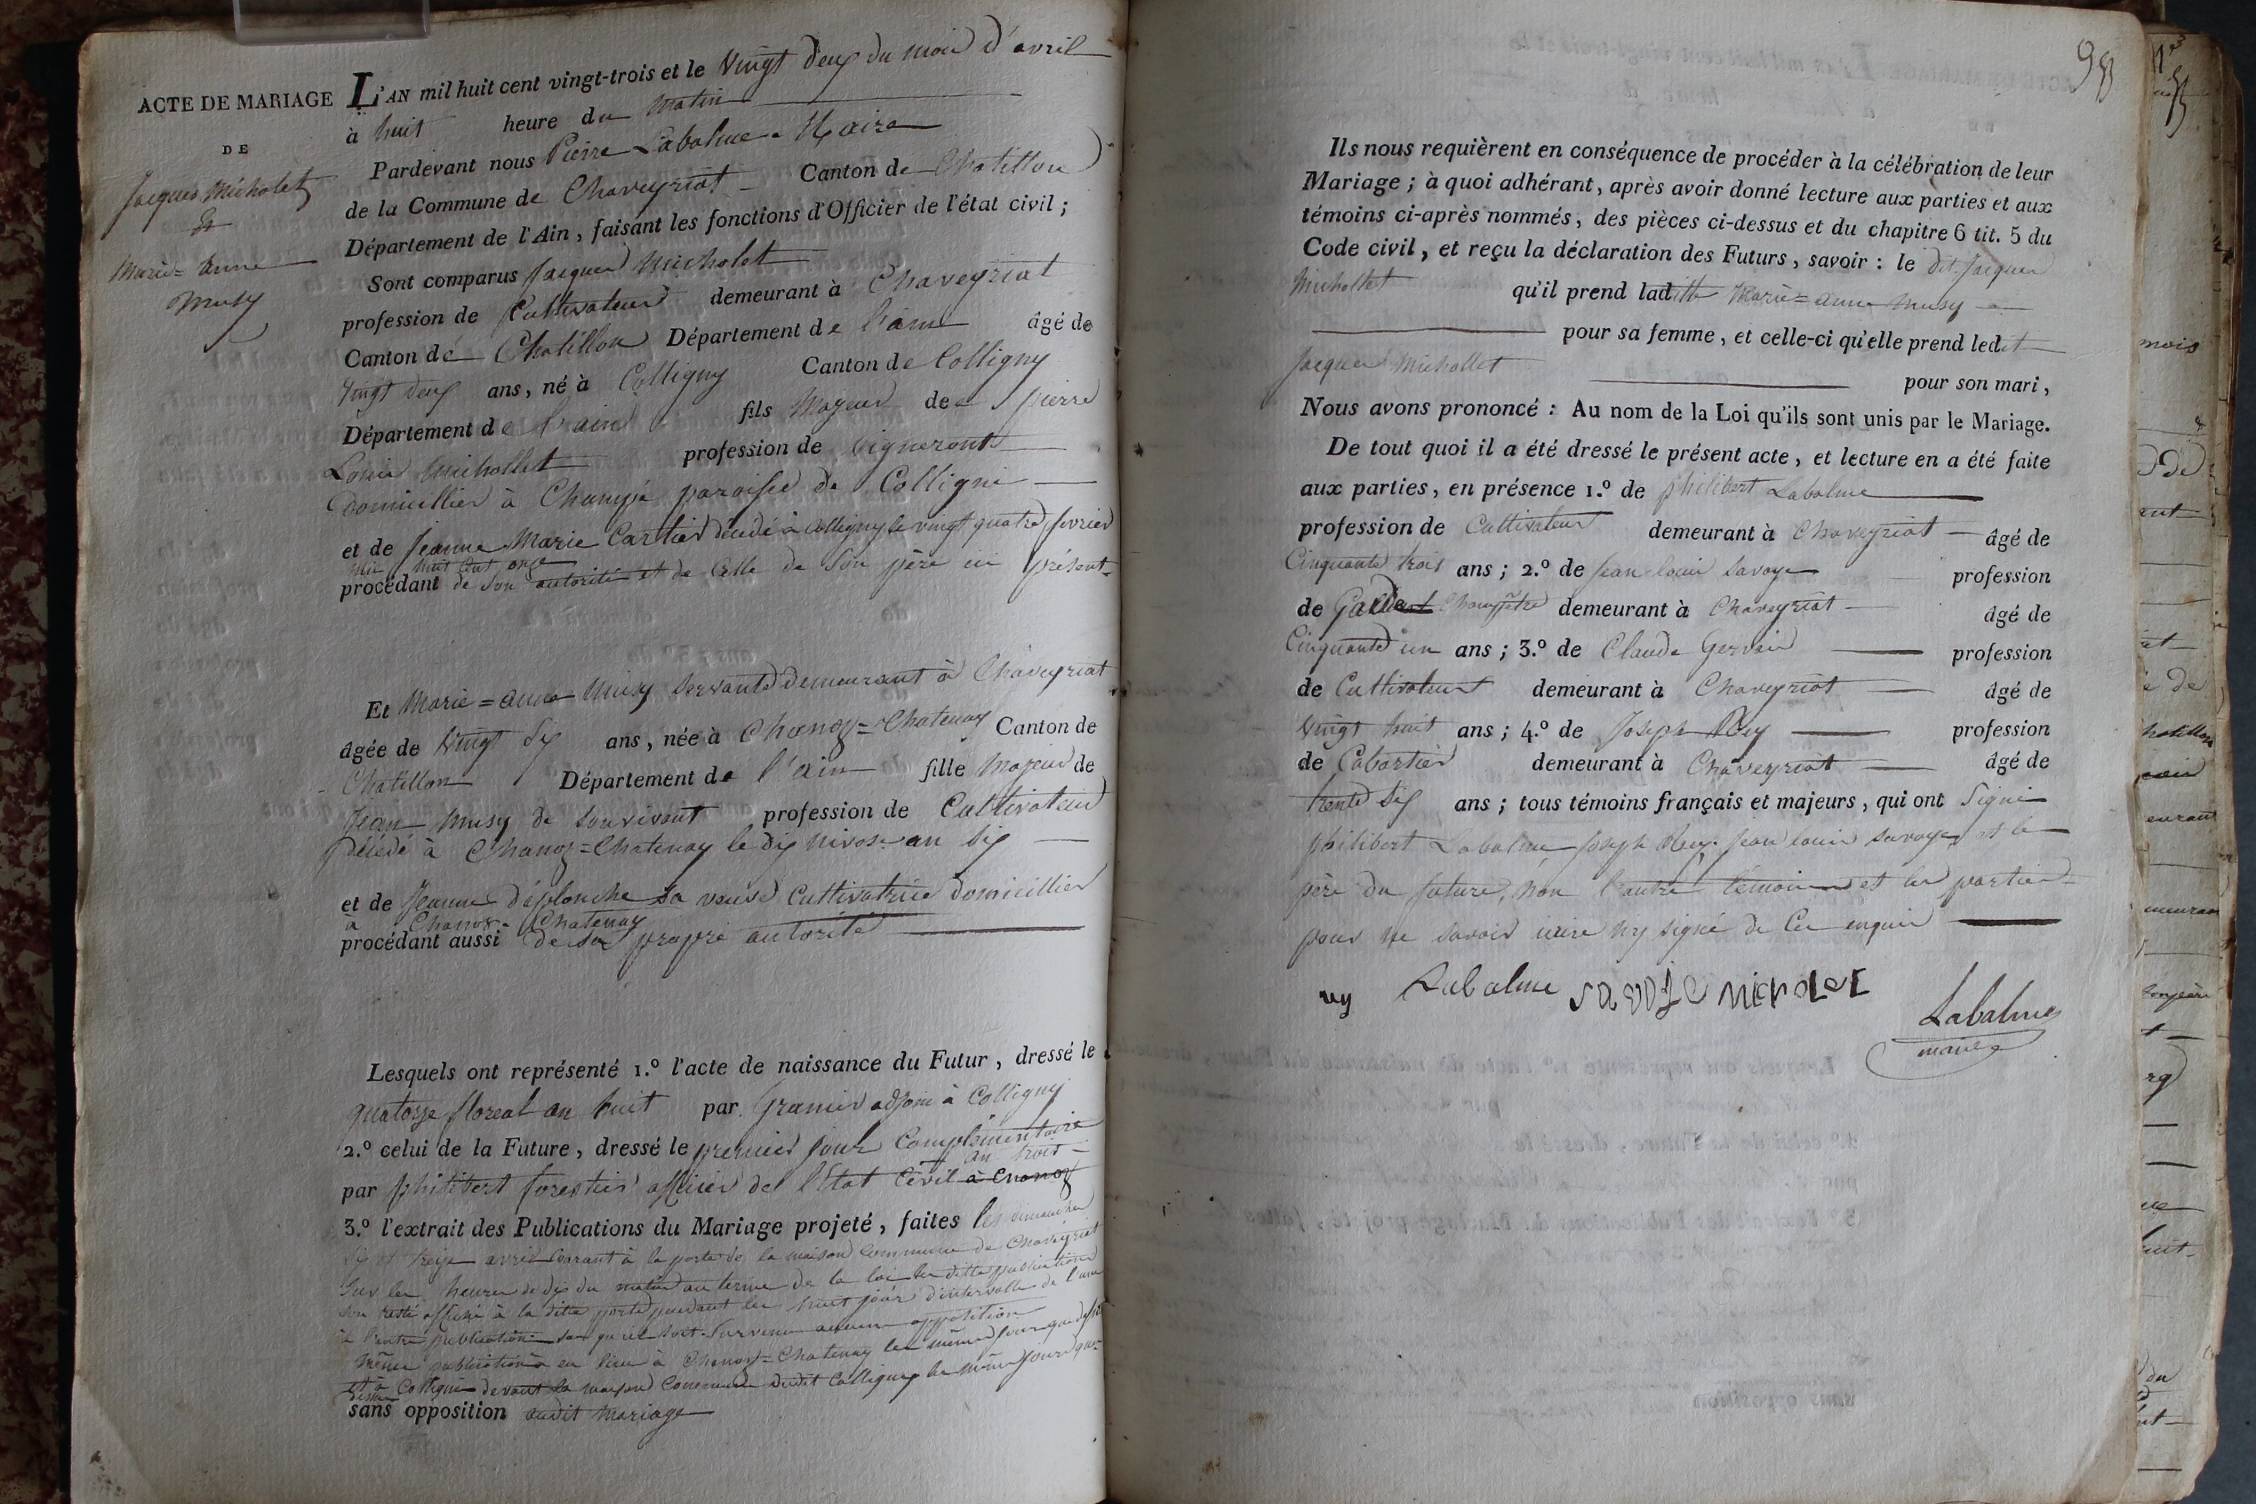 ACTE DE MARIAGE
DE
Jacques Micholet
&
Marie=anne
musy
L'AN mil huit cent vingt-trois et le vingt deux du mois d'avril
à huit heure du matin
Pardevant nous Pierre Labalme Maire
de la Commune de Chaveyriat Canton de Chatillon
Département de l'Ain, faisant les fonctions d'Officier de l'état civil ;
Sont comparus Jacques Micholet
profession de Cultivateur demeurant à Chaveyriat
Canton de Chatillon Département de l'ain âgé de
vingt deux ans, né à Colligny Canton de Colligny
Département de l'ain fils Majeur de pierre
Louis Michollet profession de vigneront
Domicillier à Champé paroisse de Colligni
et de Jeanne Marie Cartier décédé à Colligny le vingt quatre fevrier
mil huit cent onze
procédant de son autorité et de celle de son père ici présent
Et Marie=anne Musy servante demeurant à Chaveyriat
âgée de vingt six ans, née à Chanoz=Chatenay Canton de
Chatillon Département de l'ain fille Majeur de
Jean musy de souvivant profession de Cultivateur
décédé à Chanoz=Chatenay le dix nivose an six
et de Jeanne déplanche sa veuve cultivatrice domicillier
à Chanoz-Chatenay
procédant aussi de sa propre autorité
Lesquels ont représenté 1.º l'acte de naissance du Futur, dressé le
quatorze floreal an huit par Granier adjoin à Colligny
2.º celui de la Future, dressé le premier jour Complementaire
an trois
par philibert forestier officier de l'Etat Civil à Chanoz
3.º l'extrait des Publications du Mariage projeté, faites les dimanche
six et treize avril Courant à la porte de la maison Commune de Chaveyriat
Sur les heures de dix du matin au terme de la loi les dittes publications
son resté affiché à la ditte porte pendant les huit jour d'intervalle de l'une
à l'autre publication san qu'il soit survenu aucune opposition
même publication a eu lieu à Chanoz=Chatenay les même jour que dessus
et à Colligni devant la maison Commune dudit Colligny les même jours que
dessus
sans opposition audit mariage
95
Ils nous requièrent en conséquence de procéder à la célébration de leur
Mariage ; à quoi adhérant, après avoir donné lecture aux parties et aux
témoins ci-après nommés, des pièces ci-dessus et du chapitre 6 tit. 5 du
Code civil, et reçu la déclaration des Futurs, savoir : le dit Jacques
Michollet qu'il prend ladite Marie=anne Musy
pour sa femme, et celle-ci qu'elle prend ledit
Jacques Michollet pour son mari,
Nous avons prononcé : Au nom de la Loi qu'ils sont unis par le Mariage.
De tout quoi il a été dressé le présent acte, et lecture en a été faite
aux parties, en présence 1.º de philibert Labalme
profession de Cultivateur demeurant à Chaveyriat âgé de
Cinquante trois ans ; 2.º de Jean louis Savoye profession
de Garde Champêtre demeurant à Chaveyriat âgé de
Cinquante un ans ; 3.º de Claude Gervais profession
de Cultivateur demeurant à Chaveyriat âgé de
vingt huit ans ; 4.º de Joseph Rey profession
de Cabartier demeurant à Chaveyriat âgé de
trente six ans ; tous témoins français et majeurs, qui ont Signé
philibert Labalme Joseph Rey. Jean louis savoye et le
père du future, non l'autre témoin et les parties
pour ne savoir écrire ny signé de Ce enquis
Labalme SAVOIE MICHOLET
Labalme
maire